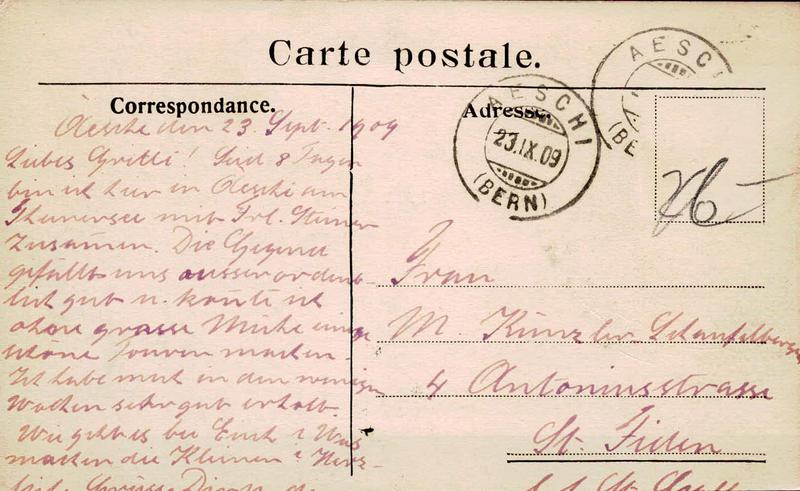 Carte postale.
Correspondance.
Adresse.
AESCHI
23.IX.09
(BERN)
AESCHI
(BE
Aeschi den 23 Sept. 1909
Liebes Gritli! Seit 8 Tagen
bin ich hier in Aeschi am
Thunersee mit Frl. Steiner
zusamen. Die Gegend
gefällt uns ausserordent-
lich gut u. konte ich
ohne grosse Mühe einige
schöne Touren machen.
Ich habe mich in den wenigen
Wochen sehr gut erholt.
Wie geht es bei Euch? Was
machen die Kleinen? Herz-
Frau
M. Künzler-Schaufelberger
4 Antoniusstrasse
St. Fiden